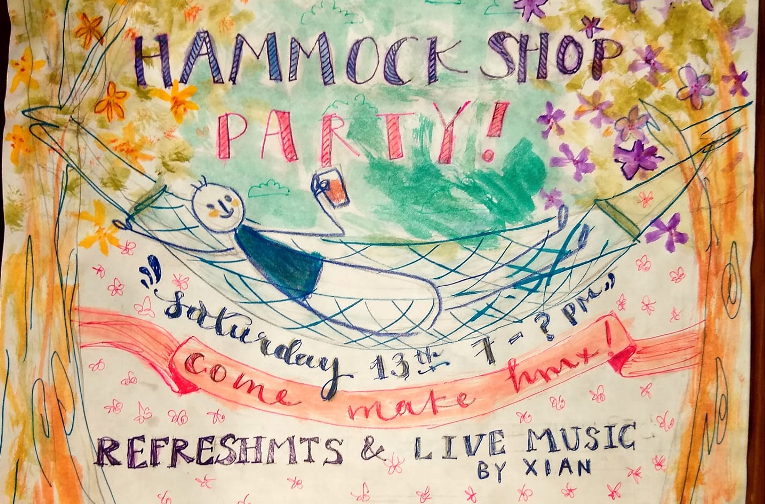 HAMMOCK SHOP
PARTY!
saturday 13th 7-?pm
come make hmx!
REFRESHMTS & LIVE MUSIC
BY XIAN